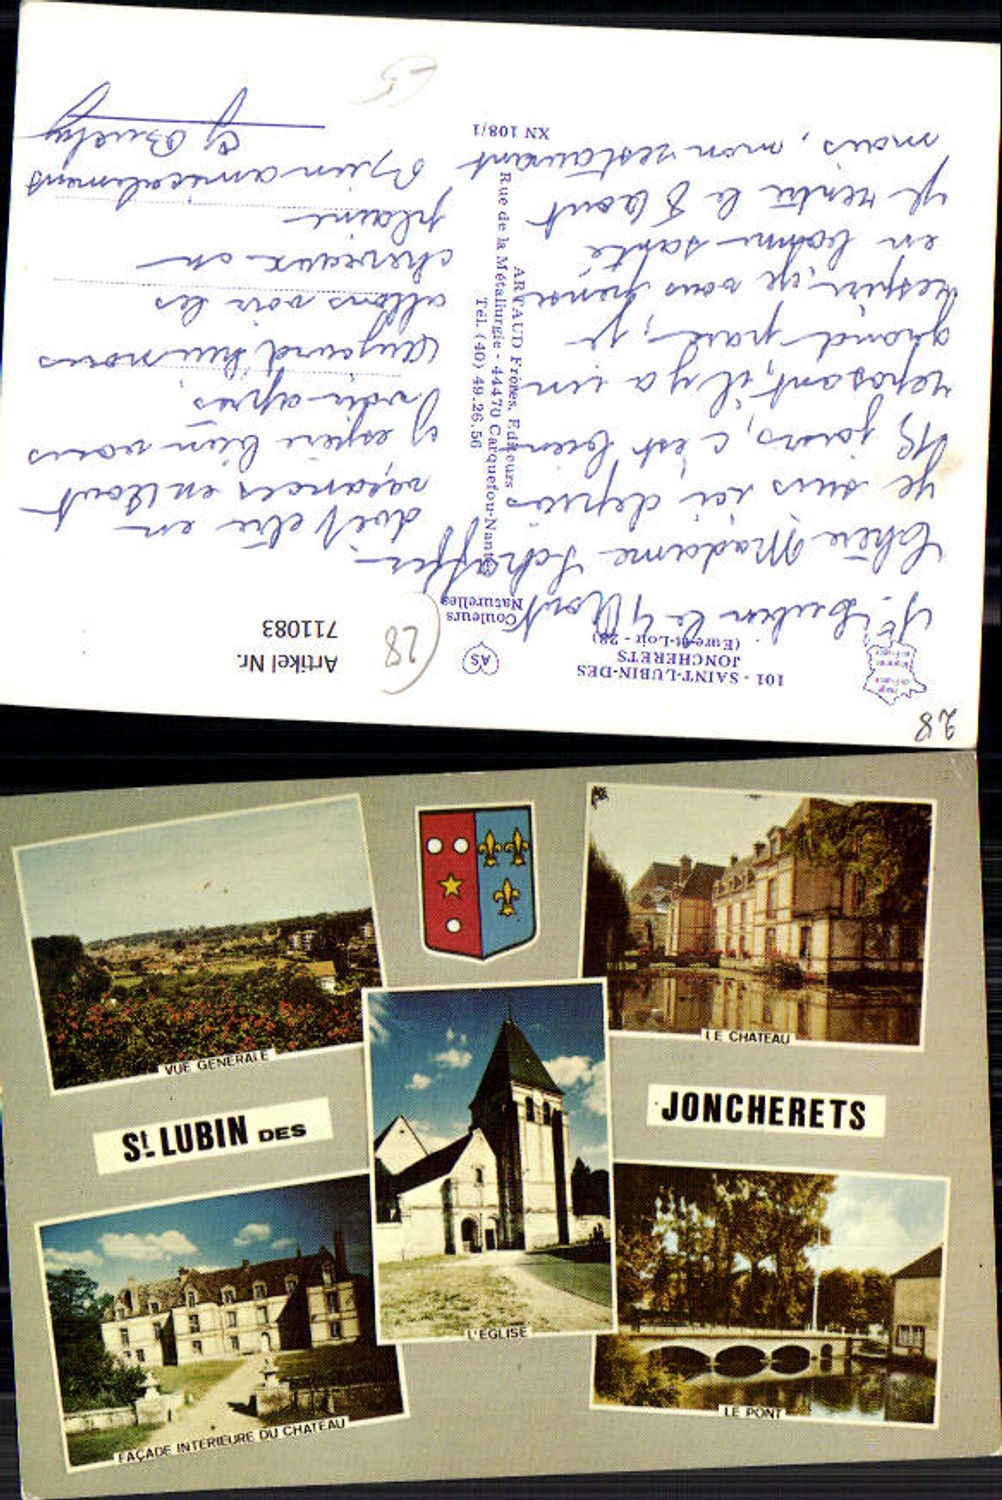 28
101 - SAINT-LUBIN-DES
JONCHERETS
(Eure-et-Loir - 28)
AS
Couleurs
Naturelles
28
Artikel Nr.
711083
St Lubin le 4 Aout
Chère Madame Schaffer
Je suis ici depuis
15 jours, c'est bien
reposant, il y a un
grand parc, je
espère, que vous
en bonne santé
je rentre le 8 Aout
mais, mon restaurant
doit être en
vacances en Aout
J'espère bien vous
voir après,
Aujourd'hui nous
allons voir les
chevaux en
plaine
Bien amicalement
ARTAUD Frères, Editeurs
Rue de la Métallurgie - 44470 Carquefou-Nantes
Tél. (40) 49.26.56
XN 108/1
VUE GENERALE
LE CHATEAU
St. LUBIN DES
JONCHERETS
L'EGLISE
FAÇADE INTERIEURE DU CHATEAU
LE PONT